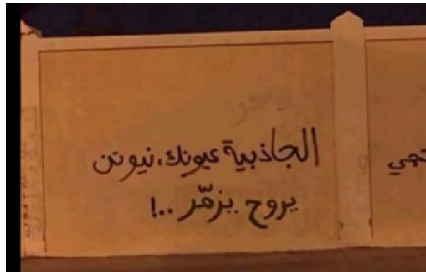 الجاذبية عيونك، نيوتن
يروح يزمّر ..!